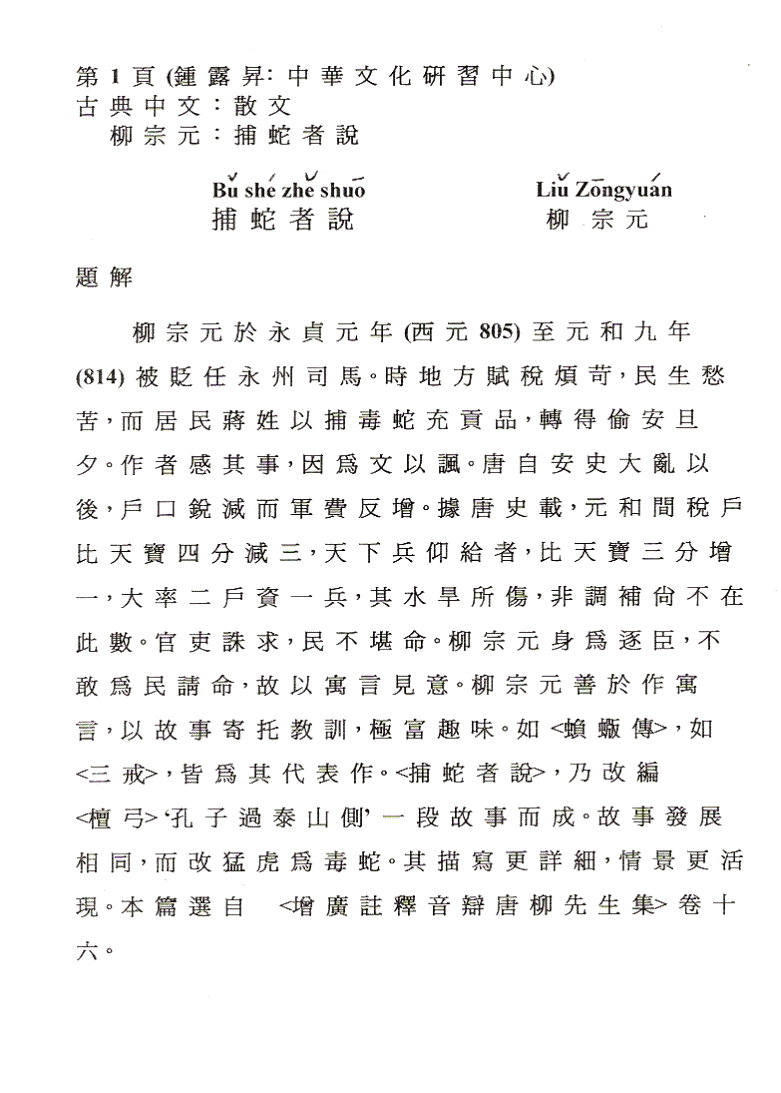 第 1 頁 (鍾露昇: 中華文化研習中心)
古典中文：散文
柳宗元：捕蛇者說
Bǔ shé zhě shuō Liǔ Zōngyuán
捕蛇者說 柳宗元
題解
柳宗元於永貞元年 (西元 805) 至元和九年
(814) 被貶任永州司馬。時地方賦稅煩苛，民生愁
苦，而居民蔣姓以捕毒蛇充貢品，轉得偷安旦
夕。作者感其事，因爲文以諷。唐自安史大亂以
後，戶口銳減而軍費反增。據唐史載，元和間稅戶
比天寶四分減三，天下兵仰給者，比天寶三分增
一，大率二戶資一兵，其水旱所傷，非調補尙不在
此數。官吏誅求，民不堪命。柳宗元身爲逐臣，不
敢爲民請命，故以寓言見意。柳宗元善於作寓
言，以故事寄托教訓，極富趣味。如 <蝜蝂傳>，如
<三戒>，皆爲其代表作。<捕蛇者說>，乃改編
<檀弓> ‘孔子過泰山側’ 一段故事而成。故事發展
相同，而改猛虎爲毒蛇。其描寫更詳細，情景更活
現。本篇選自 <增廣註釋音辯唐柳先生集> 卷十
六。